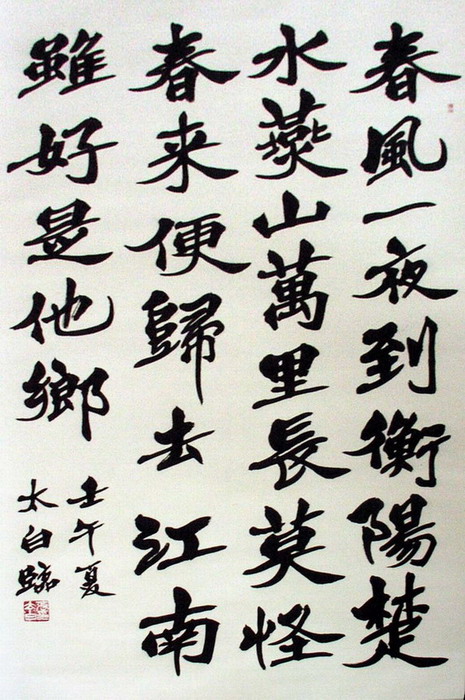 春風一夜到衡陽楚
水燕山萬里長莫怪
春来便歸去江南
雖好是他鄉
壬午夏
太白臨